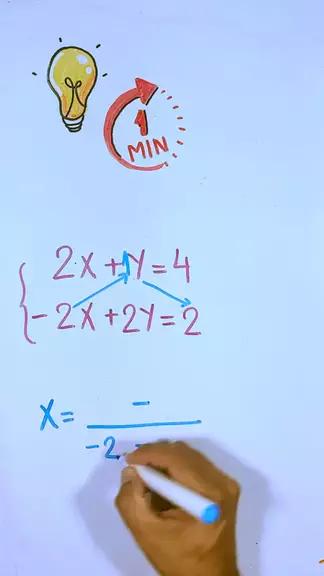 1
MIN
2X+1Y=4
-2X+2Y=2
X= -
-2 -